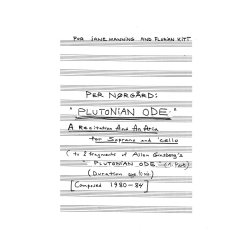 FOR JANE MANNING AND FLORIAN KITT
PER NØRGÅRD:
"PLUTONIAN ODE"
A Recitation And An Aria
for Soprano and 'cello
(to 2 fragments of Allen Ginsberg's
PLUTONIAN ODE
(Duration
[Composed 1980-84]